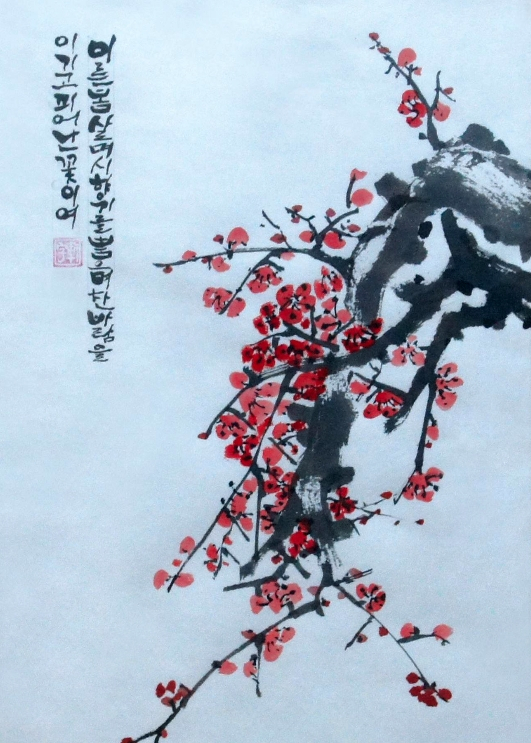 이른봄 살며시 향기를 뿜으며 찬 바람을
이기고 피어난 꽃이여